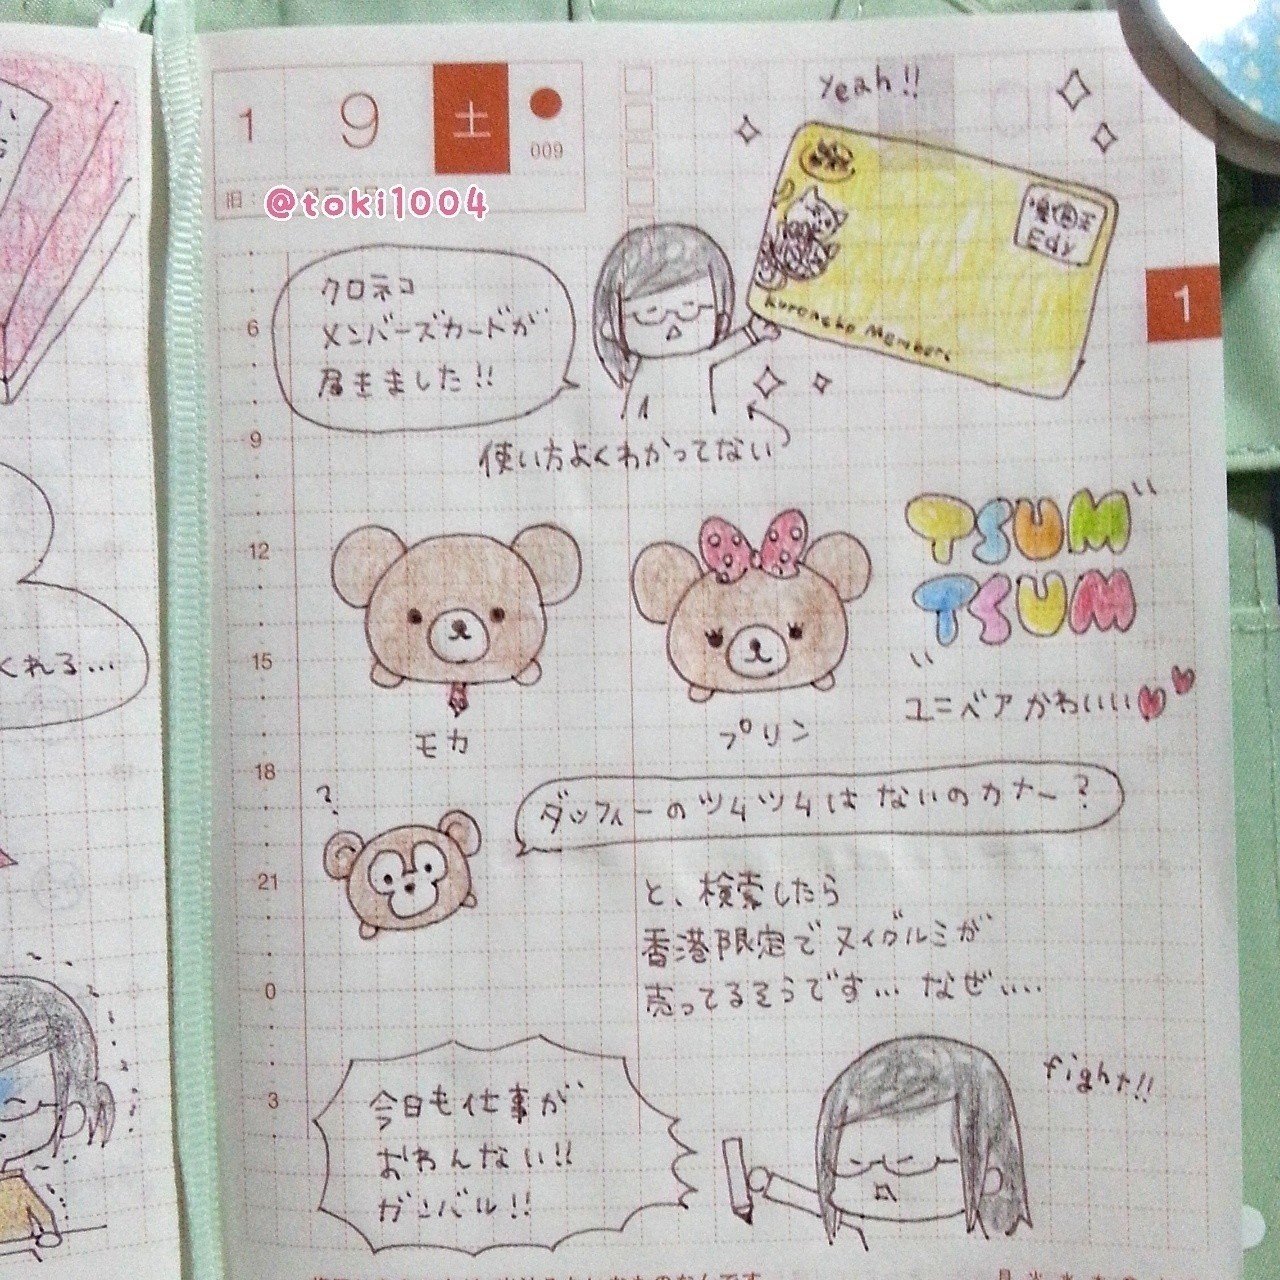 1 9 土
009
旧
@toki1004
Yeah!!
Edy
Kuroneko Members
クロネコ
メンバーズカードが
届きました!!
使い方よくわかってない
1
6
9
12
15
18
21
0
3
TSUM
TSUM
ユニベアかわいい
モカ
プリン
くれる…
?
ダッフィーのツムツムはないのカナー?
と、検索したら
香港限定でヌイグルミが
売ってるそうです… なぜ….
今日も仕事が
おわんない!!
ガンバル!!
fight!!